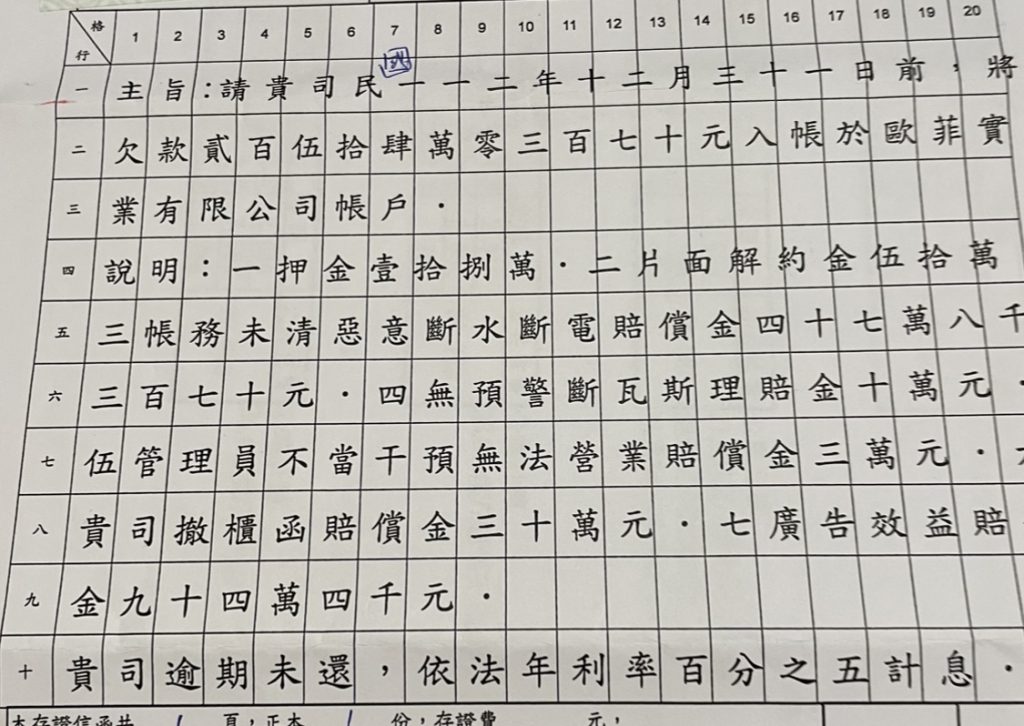 格 1 2 3 4 5 6 7 8 9 10 11 12 13 14 15 16 17 18 19 20
行 國
一 主旨:請貴司民一一二年十二月三十一日前,將
二 欠款貳百伍拾肆萬零三百七十元入帳於歐菲實
三 業有限公司帳戶.
四 說明:一押金壹拾捌萬.二片面解約金伍拾萬
五 三帳務未清惡意斷水斷電賠償金四十七萬八千
六 三百七十元.四無預警斷瓦斯理賠金十萬元.
七 伍管理員不當干預無法營業賠償金三萬元.
八 貴司撤櫃函賠償金三十萬元.七廣告效益賠
九 金九十四萬四千元.
十 貴司逾期未還,依法年利率百分之五計息.
本存證信函共 1 頁,正本 1 份,存證費 元,